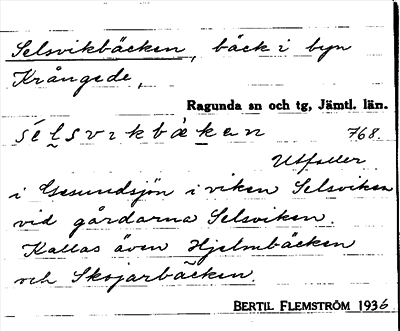 Selsvikbäcken, bäck i byn
Krångede,
Ragunda sn och tg, Jämtl. län.
sélsvɩkbä̀kɘn 768.
Utfaller
i Gesundsjön i viken Selsviken
vid gårdarna Selsviken.
Kallas även Hjelmbäcken
och Skojarbäcken.
BERTIL FLEMSTRÖM 1936